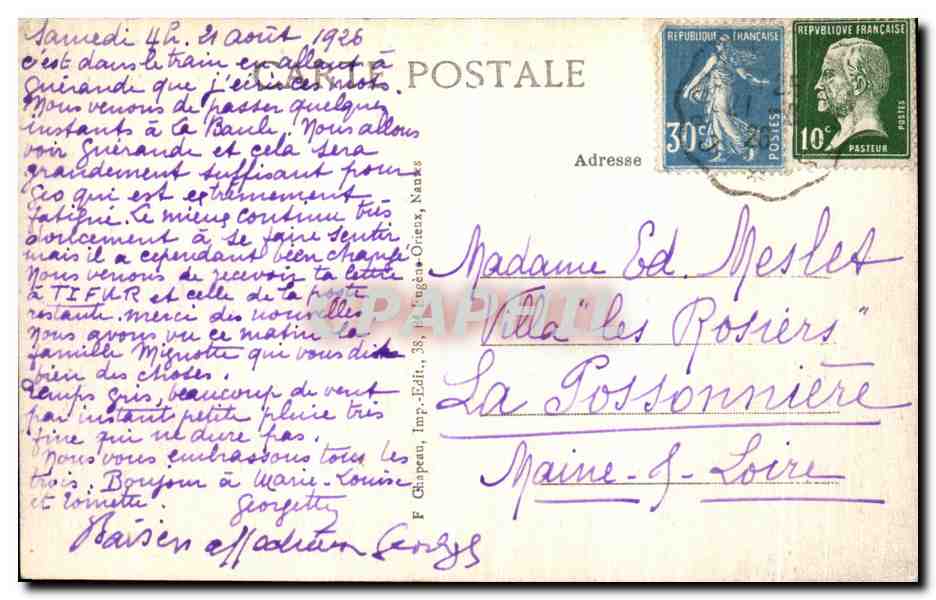 Samedi 4h. 21 août 1926
c'est dans le train en allant à
Guérande que j'écris ces mots.
Nous venons de passer quelques
instants à la Baule. Nous allons
voir Guérande et cela sera
grandement suffisant pour
Geo qui est extrêmement
fatigué. Le mieux continue très
doucement à se faire sentir
mais il a cependant bien changé
Nous venons de recevoir ta lettre
à TIFKR et celle de la poste
restante. merci des nouvelles
Nous avons vu ce matin la
famille Mignotte qui vous dit
bien des choses.
Temps gris, beaucoup de vent
par instant petite pluie très
fine qui ne dure pas.
Nous vous embrassons tous les
trois. Bonjour à Marie-Louise
et Tomette.
Georgette
Baisers affectueux Georges
CARTE POSTALE
F Chapeau, Imp.-Edit., 38, Eugène-Orieux, Nantes
Adresse
REPUBLIQUE FRANÇAISE
30c
POSTES
REPUBLIQUE FRANÇAISE
10c
POSTES
PASTEUR
Madame Ed. Meslet
Villa "les Rosiers"
La Possonnière
Maine-&-Loire
CPAPHIL